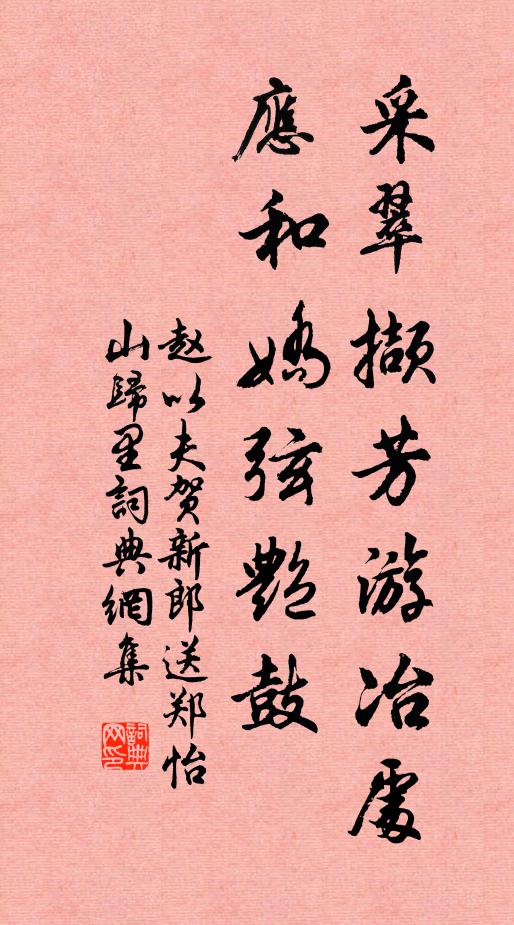 采翠擷芳游冶處
應和嬌弦艷鼓
赵以夫贺新郎送郑怡
山歸里詞典網集
詞典网印